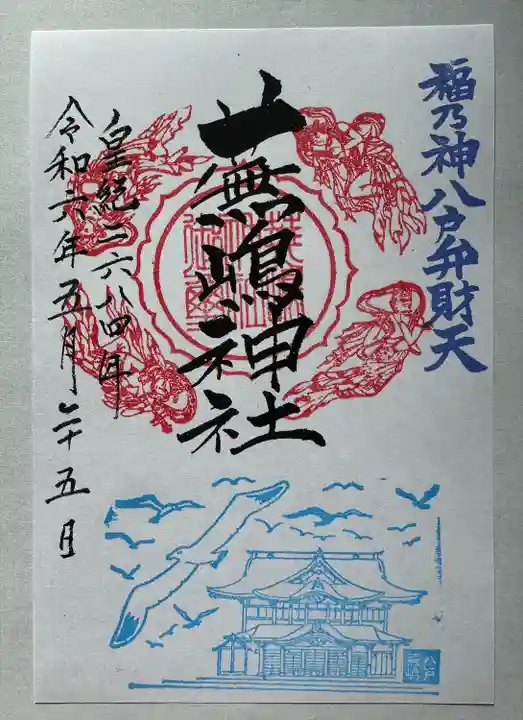 稲乃神八戸弁財天
蕪嶋神社
皇紀二六八四年
令和六年五月二十五日
八戸